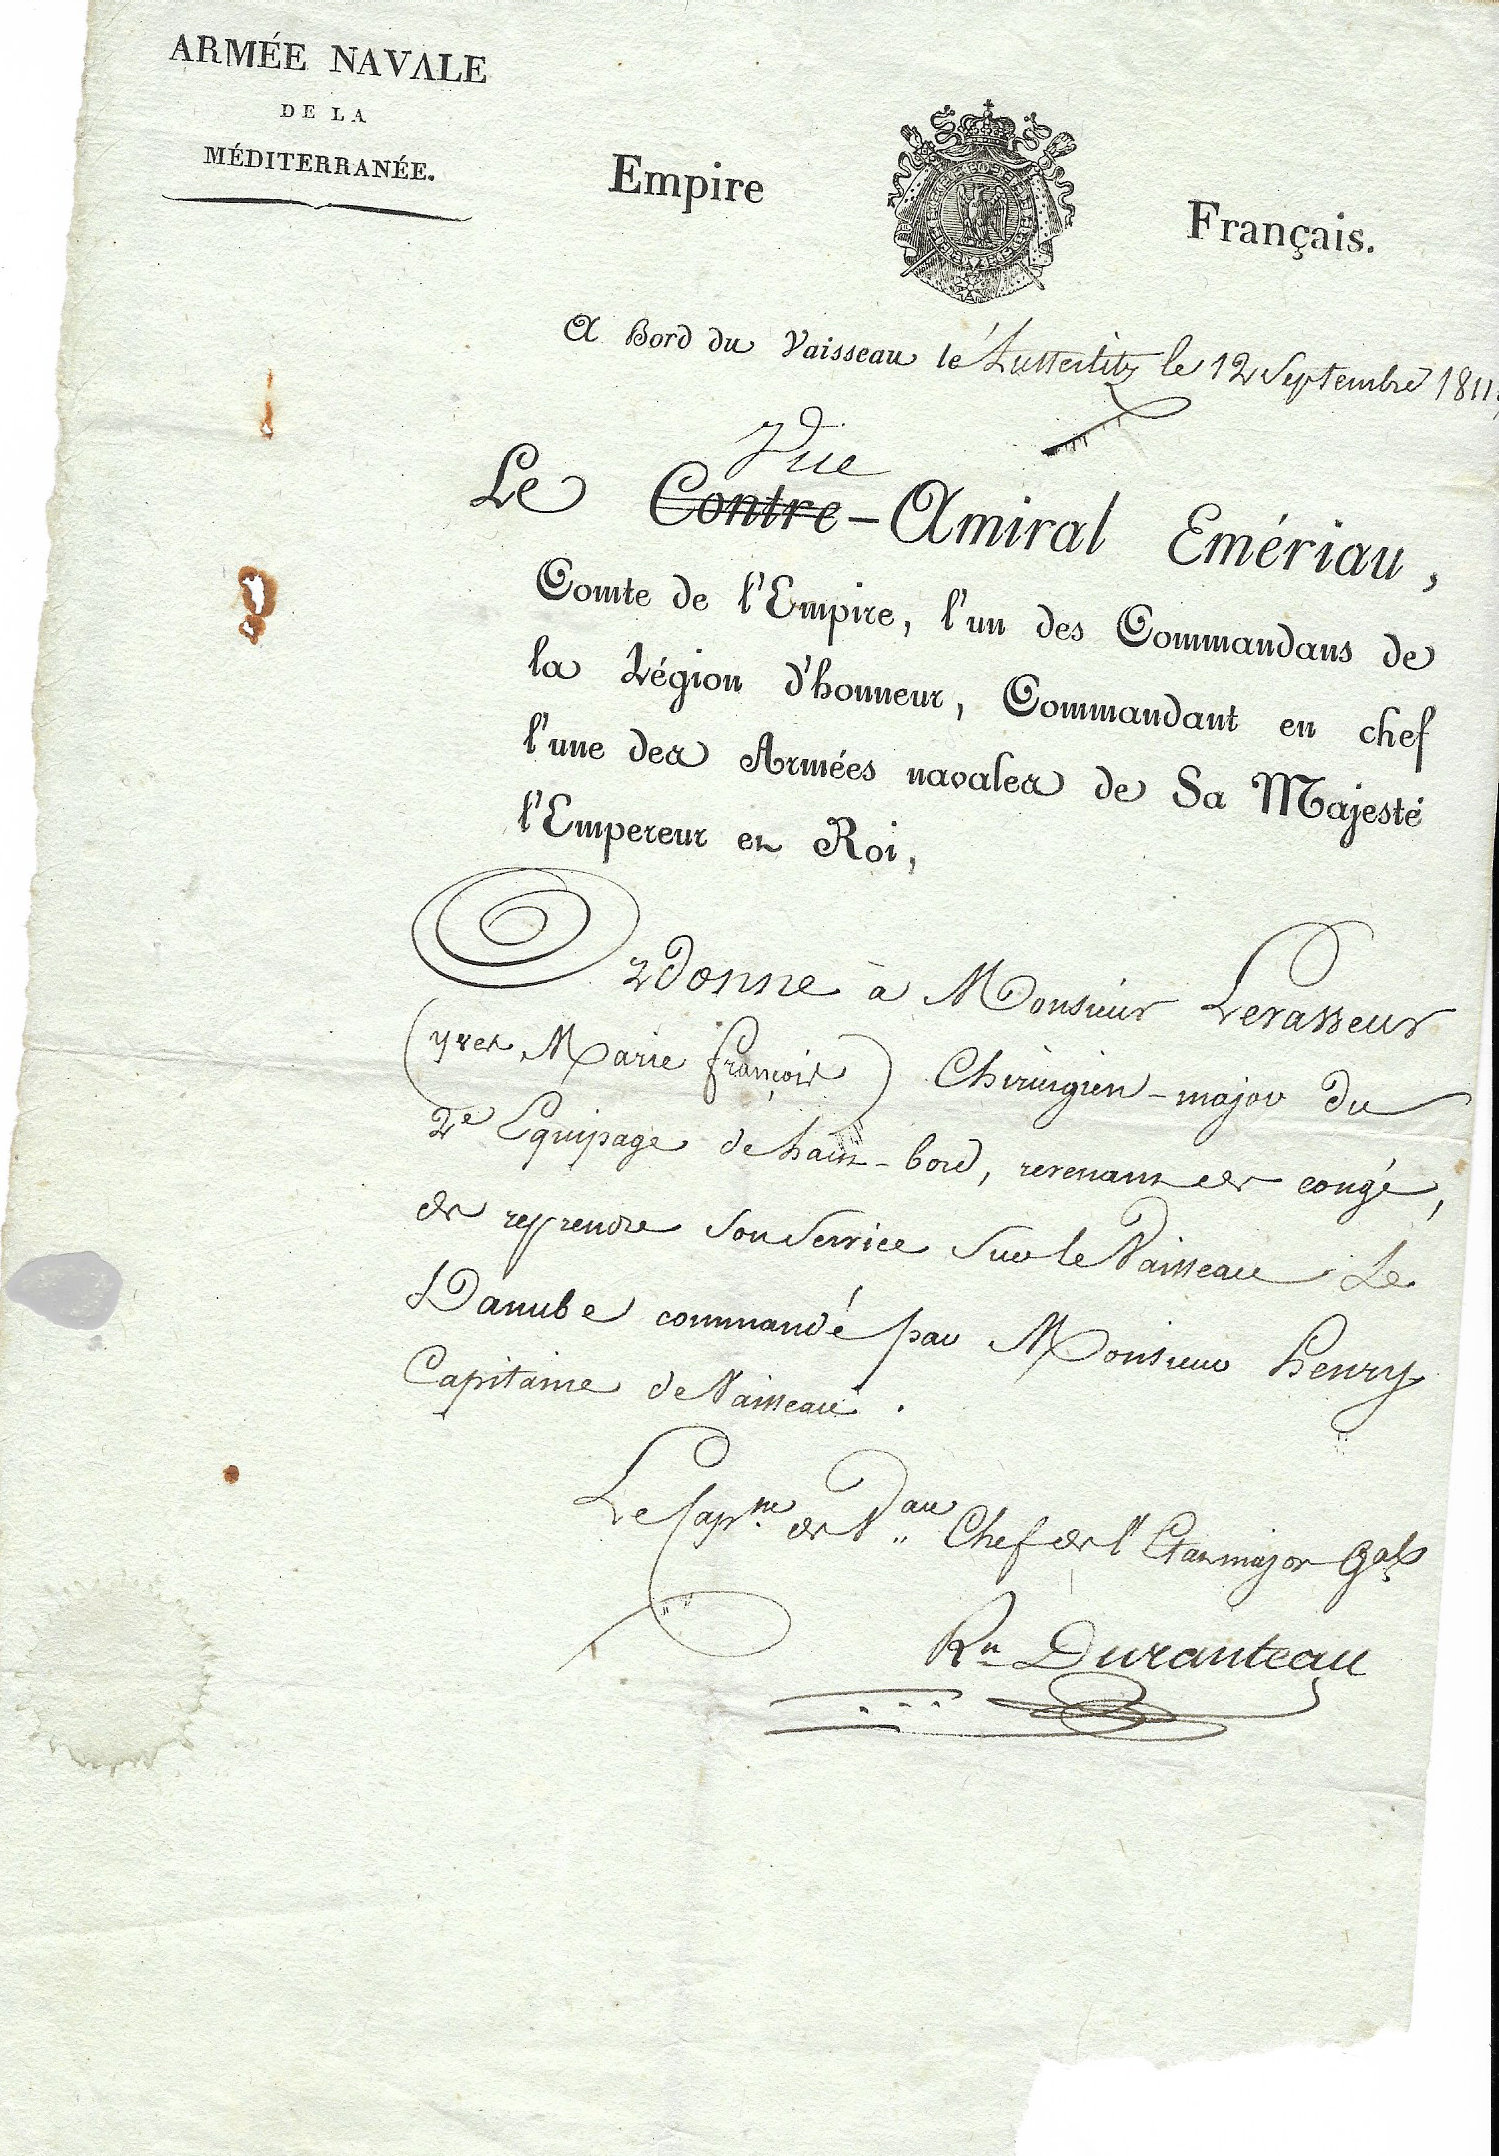 ARMÉE NAVALE
DE LA
MÉDITERRANÉE.
Empire Français.
A Bord du Vaisseau le 12 Septembre 1811.
Vice
Le Contre-Amiral Emériau,
Comte de l'Empire, l'un des Commandans de
la Légion d'honneur, Commandant en chef
l'une des Armées navales de Sa Majesté
l'Empereur et Roi,
Ordonne à Monsieur Levasseur
(yves Marie françois) Chirurgien-major du
2e Equipage de haut-bord, revenant de congé,
de reprendre son Service sur le Vaisseau Le
Danube commandé par Monsieur henry
Capitaine de Vaisseau.
Le Capne de Vau Chef de l'Etatmajor Gal
Rn Duranteau